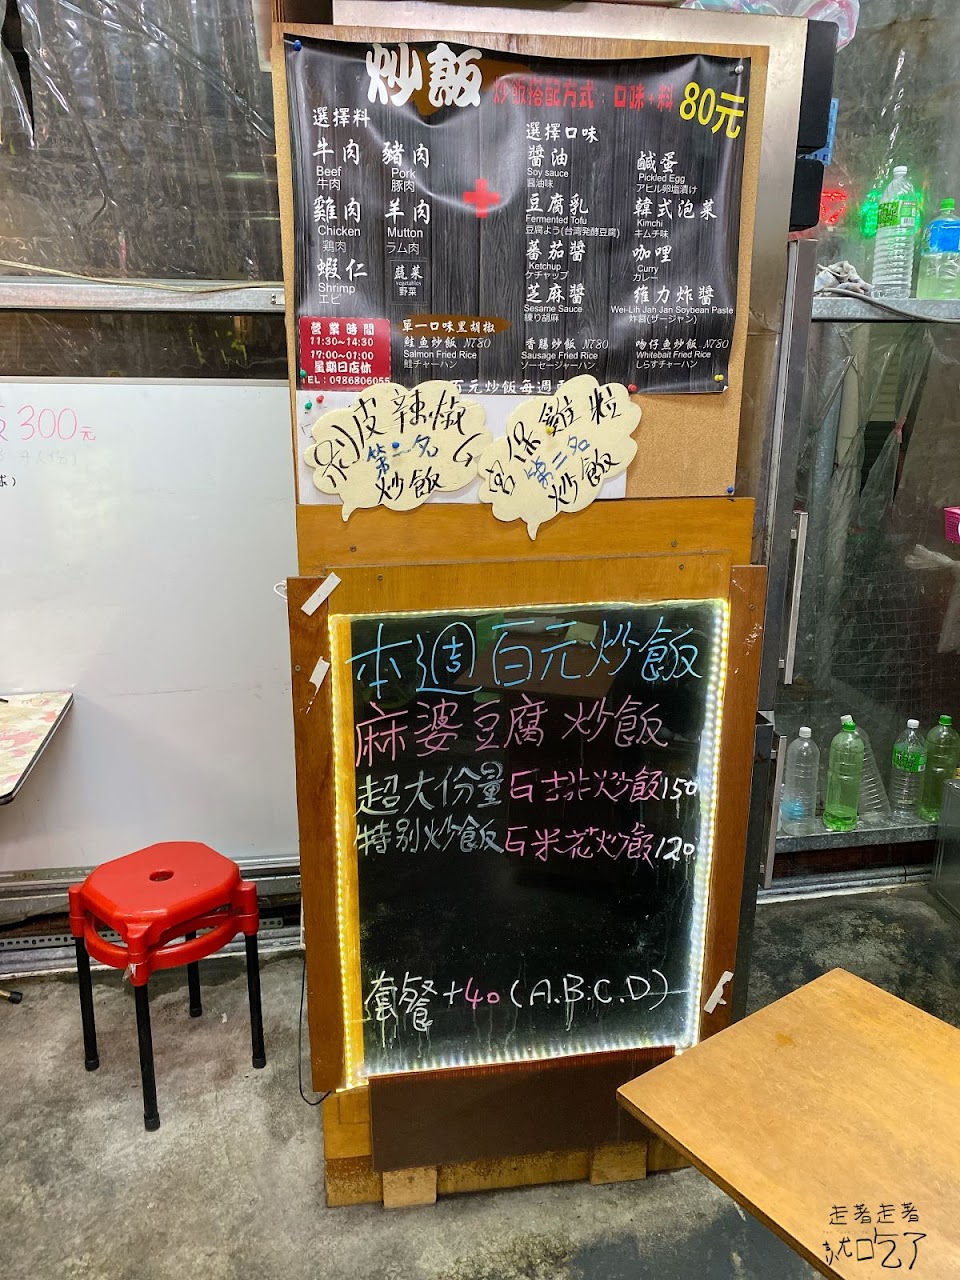 炒飯
炒飯搭配方式：口味+料 80元
選擇料
牛肉 豬肉
Beef Pork
牛肉 豚肉
雞肉 羊肉
Chicken Mutton
鶏肉 ラム肉
蝦仁 蔬菜
Shrimp vegetables
エビ 野菜
選擇口味
醬油 鹹蛋
Soy sauce Pickled Egg
醤油味 アヒル卵塩漬け
豆腐乳 韓式泡菜
Fermented Tofu Kimchi
豆腐よう(台湾発酵豆腐) キムチ味
蕃茄醬 咖哩
Ketchup Curry
ケチャップ カレー
芝麻醬 維力炸醬
Sesame Sauce Wei-Lih Jah Jan Soybean Paste
練り胡麻 炸醤(ザージャン)
營業時間
11:30~14:30
17:00~01:00
星期日店休
TEL：0986806055
單一口味黑胡椒
鮭魚炒飯 NT80 香腸炒飯 NT80 吻仔魚炒飯 NT80
Salmon Fried Rice Sausage Fried Rice Whitebait Fried Rice
鮭チャーハン ソーセージャーハン しらすチャーハン
百元炒飯每週
剝皮辣椒G
第一名
炒飯
宮保雞粒
第二名
炒飯
300元
本週百元炒飯
麻婆豆腐炒飯
超大份量 G排炒飯150
特别炒飯 G米花炒飯120
套餐+40(A.B.C.D)
走著走著
就吃了